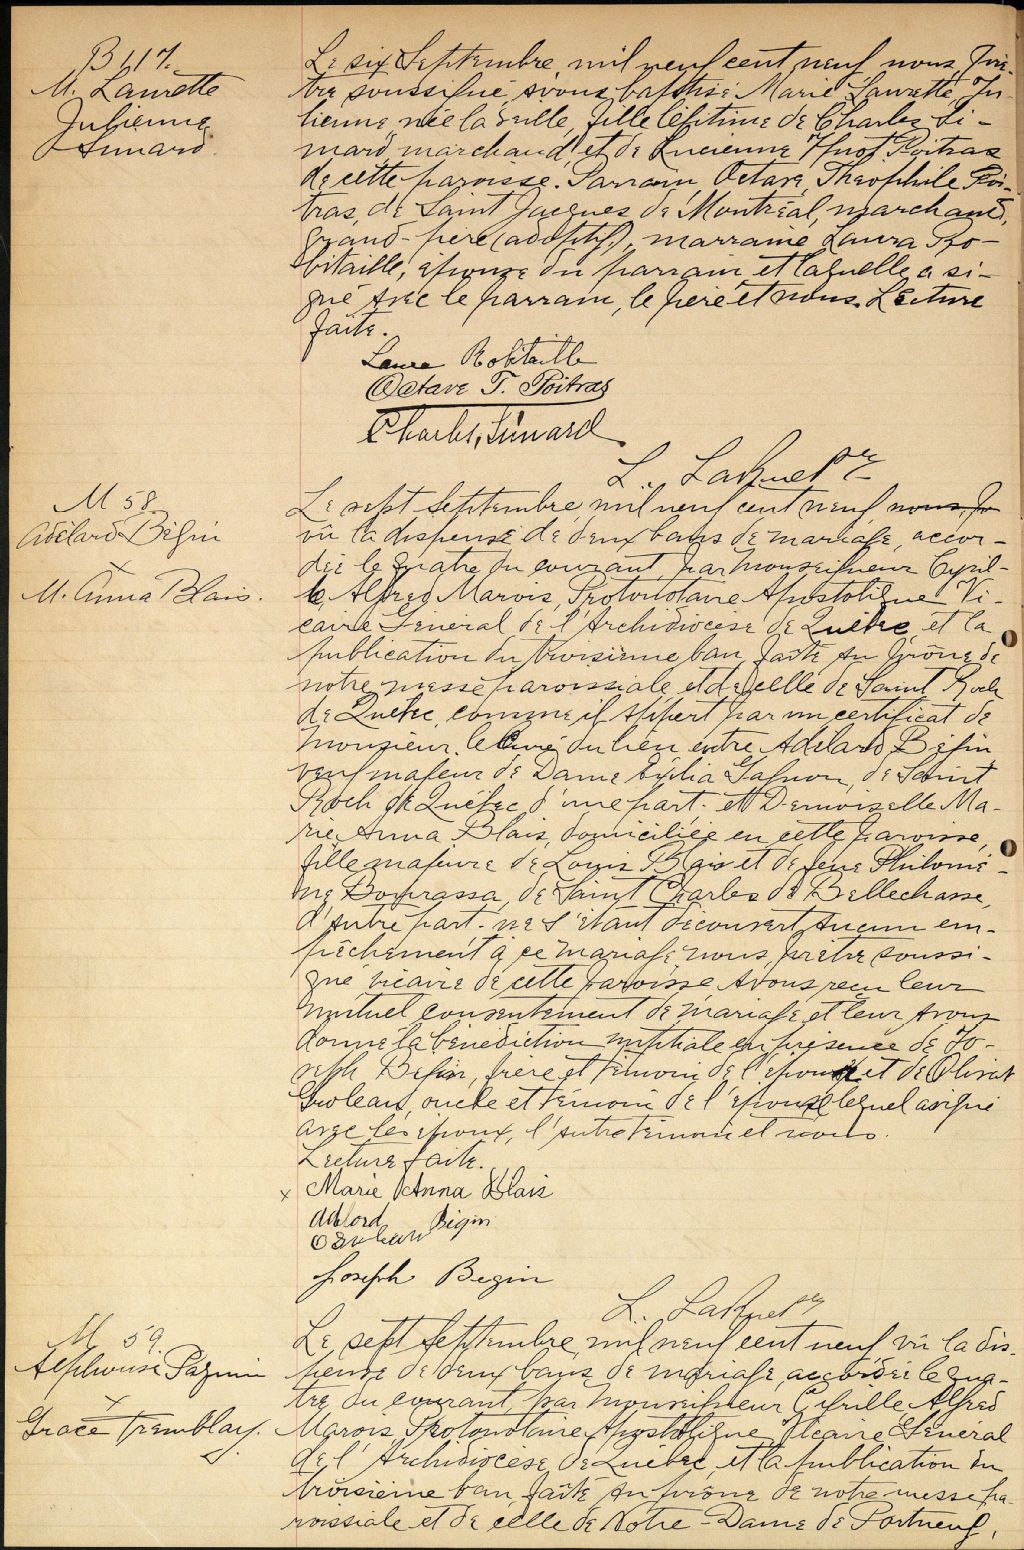 B 117.
M. Laurette
Julienne
Simard.
Le six Septembre, mil neuf cent neuf nous, Prê-
tre soussigné, avons baptisé Marie Laurette, Ju-
lienne, née la veille, fille légitime de Charles Si-
mard, marchand, et de Lucienne Huot Poitras
de cette paroisse. Parrain, Octave, Théophile Poi-
tras, de Saint Jacques de Montréal, marchand,
grand-père (adoptif), marraine Laura Ro-
bitaille, épouse du parrain et laquelle a si-
gné avec le parrain, le père et nous. Lecture
faite.
Laura Robitaille
Octave T. Poitras
Charles, Simard
L.
M 58
Adélard Bégin
x
M. Anna Blais.
Le sept Septembre, mil neuf cent neuf nous, P
vû la dispense de deux bans de mariage, accor-
dée le quatre du courant, par Monseigneur Cyril-
le Alfred Marois, Protonotaire Apostolique, Vi-
caire Général de l'Archidiocèse de Québec, et la
publication du troisième ban, faite au prône de
notre messe paroissiale et de celle de Saint Roch
de Québec, comme il appert par un certificat de
Monsieur le Curé du lieu entre Adélard Bégin
veuf majeur de Dame Gagnon, de Saint
Roch de Québec d'une part. et Demoiselle Ma-
rie, Anna Blais, domiciliée en cette paroisse,
fille majeure de Louis Blais et de feue Philomè-
ne Bourassa, de Saint Charles de Bellechasse,
d'autre part. ne s'étant découvert aucun em-
pêchement à ce mariage, nous, prêtre soussi-
gné vicaire de cette paroisse avons reçu leur
mutuel consentement de mariage et leur avons
donné la bénédiction nuptiale en présence de Jo-
seph Bégin, frère et témoin de l'époux et de
oncle et témoin de l'épouse lequel a signé
avec les époux, l'autre témoin et nous.
Lecture faite.
x Marie Anna Blais
Adelord Bégin
Joseph Begin
L.
M 59.
Alphonse
x
Grace Tremblay.
Le, sept Septembre, mil neuf cent neuf vû la dis-
pense de deux bans de mariage, accordée le qua-
tre du courant, par Monseigneur Cyrille Alfred
Marois, Protonotaire Apostolique, Vicaire Général
de l'Archidiocèse de Québec, et la publication du
troisième ban, faite au prône de notre messe pa-
roissiale et de celle de Notre-Dame de Portneuf,